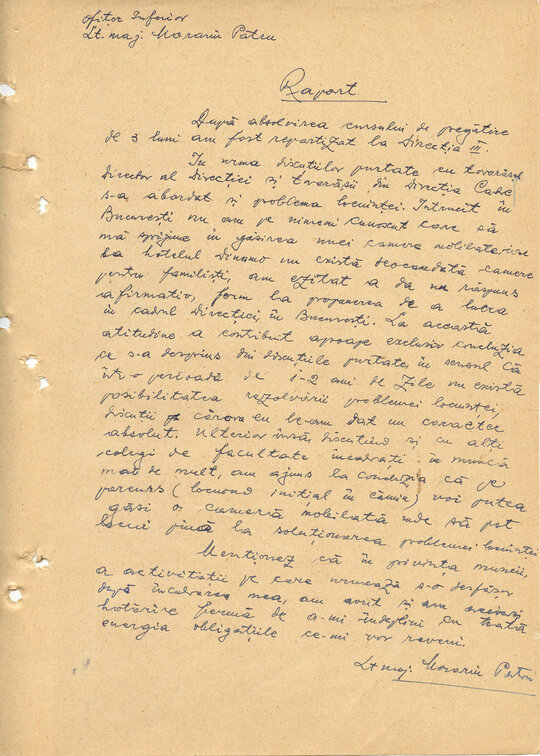 ofițer Inferior
Lt. maj. Morariu Petru
Raport
După absolvirea cursului de pregătire
de 3 luni am fost repartizat la Direcția III.
În urma discuțiilor purtate cu tovarășul
Director al Direcției și tovarășii din Direcția Cadre
s-a abordat și problema locuinței. Întrucît în
București nu am pe nimeni cunoscut care să
mă sprijine în găsirea unei camere mobilate, iar
la hotelul Dinamo nu există deocamdată camere
pentru familiști, am ezitat a da un răspuns
afirmativ, ferm la propunerea de a lucra
în cadrul Direcției, în București. La această
atitudine a contribuit aproape exclusiv concluzia
ce s-a desprins din discuțiile purtate, în sensul că
într-o perioadă de 1-2 ani de zile nu există
posibilitatea rezolvării problemei locuinței,
discuții cărora eu le-am dat un caracter
absolut. Ulterior însă, discutînd și cu alți
colegi de facultate încadrați în muncă
mai de mult, am ajuns la concluzia că pe
parcurs (locuind inițial în cămin) voi putea
găsi o cameră mobilată unde să pot
locui pînă la soluționarea problemei locuinței
Menționez că în privința muncii,
a activității pe care urmează s-o desfășor
după încadrarea mea, am avut și am aceeași
hotărîre fermă de a-mi îndeplini cu toată
energia obligațiile ce-mi vor reveni.
Lt maj. Morariu Petru